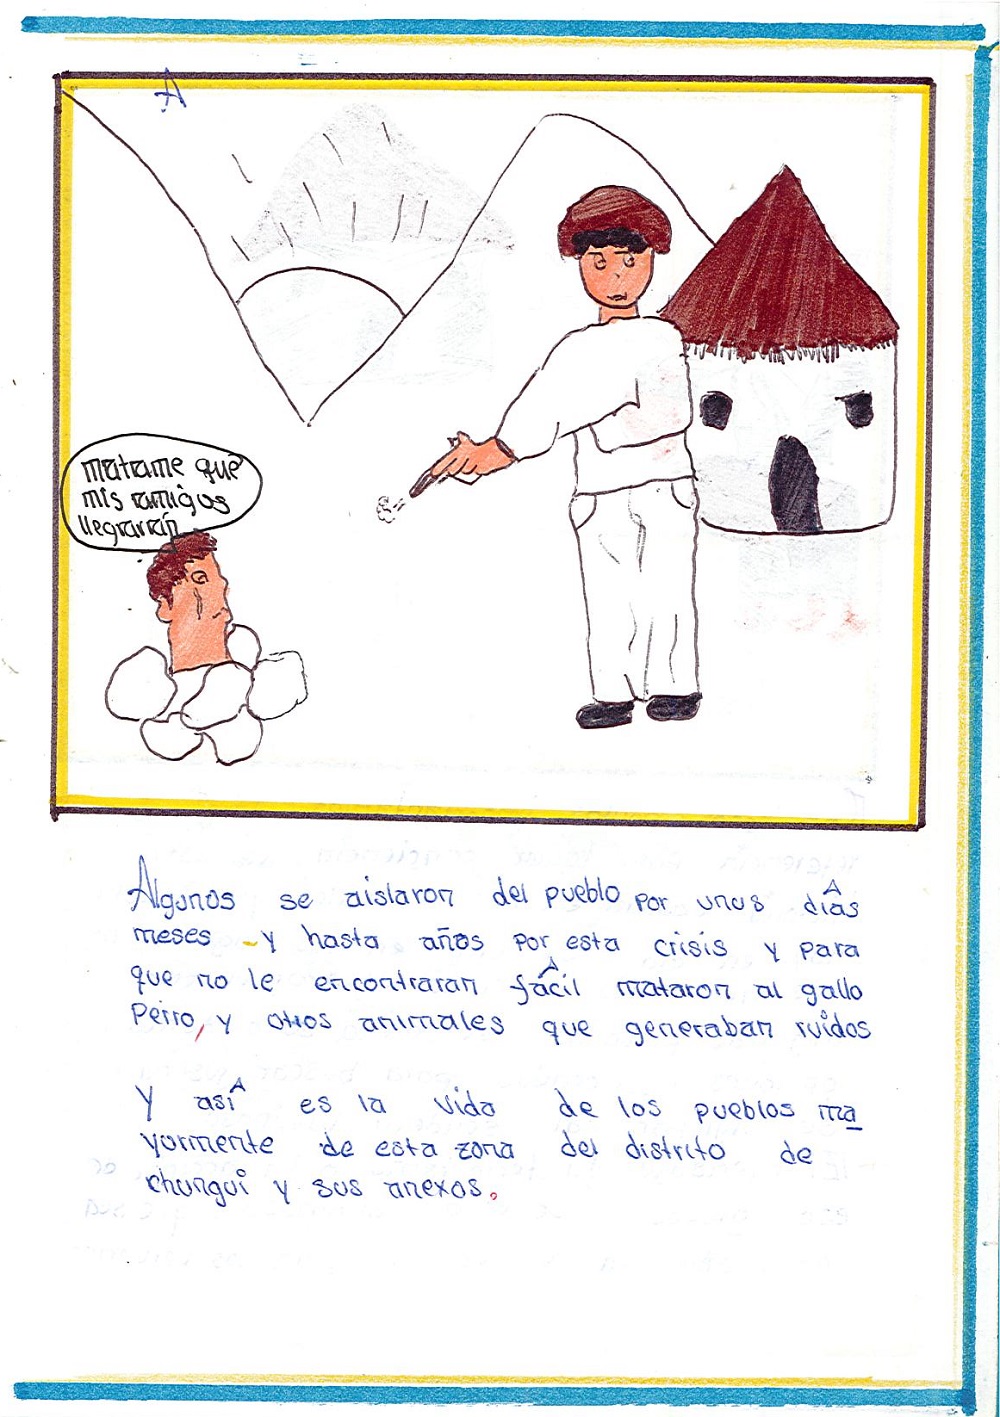 A
matame que
mis amigos
llegraran
Algunos se aislaron del pueblo por unos días
meses y hasta años por esta crisis y para
que no le encontraran fácil mataron al gallo
Perro, y otros animales que generaban ruidos
Y así es la vida de los pueblos ma
yormente de esta zona del distrito de
chungui y sus anexos.